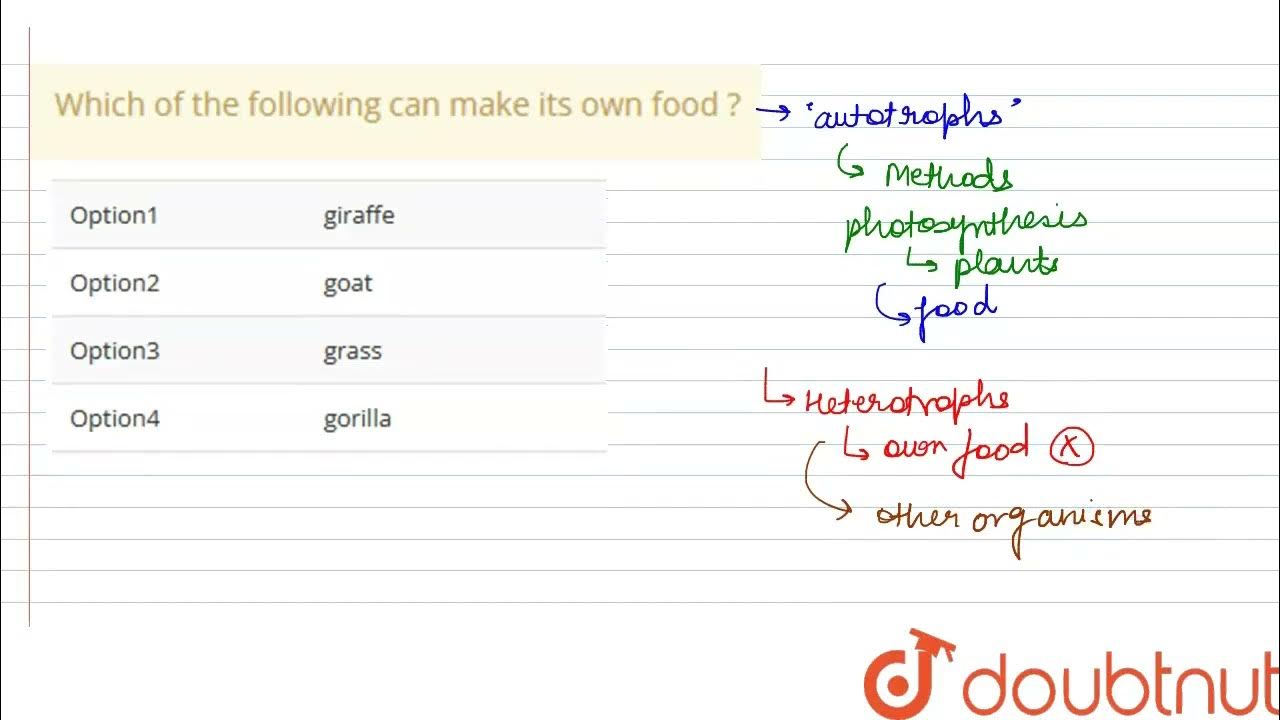 Which of the following can make its own food ?
"autotrophs"
Methods
photosynthesis
plants
food
Option1 giraffe
Option2 goat
Option3 grass
Option4 gorilla
Heterotrophs
own food X
other organisms
doubtnut